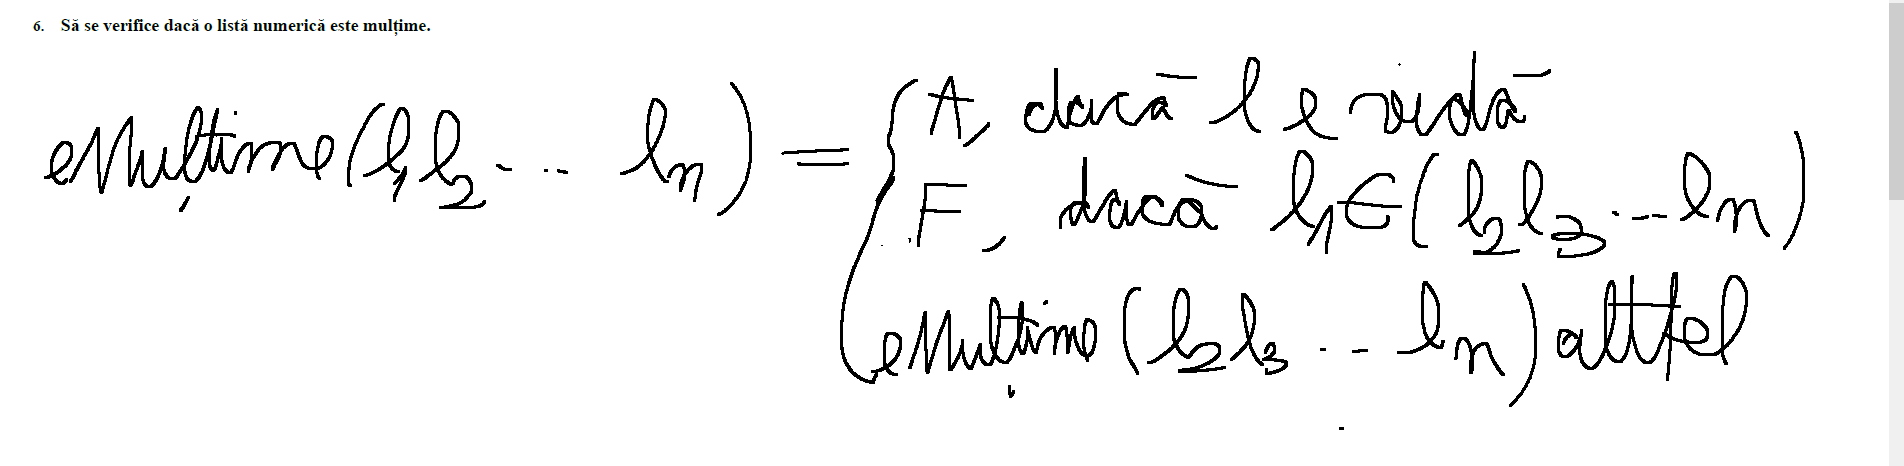 6. Să se verifice dacă o listă numerică este mulțime.
eMulțime(l₁l₂ - .. ln) = { A, dacă l e vidă
F, dacă l₁∈(l₂l₃ .-- ln)
eMulțime(l₂l₃ .-- ln) altfel